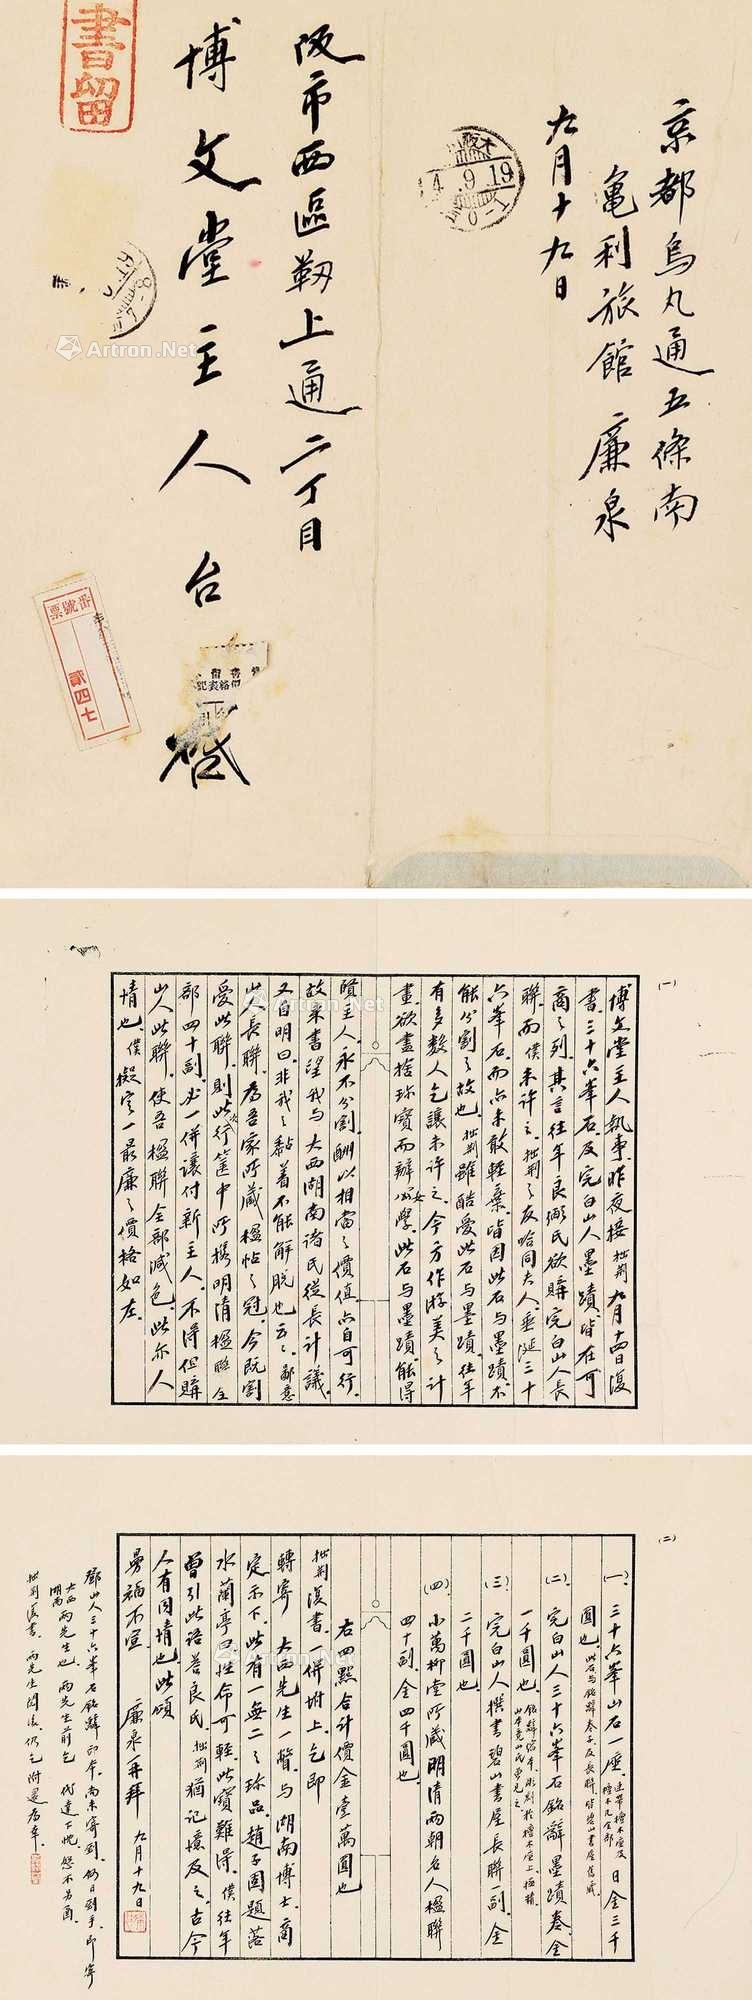 京都烏丸通五條南
亀利旅館 廉泉
九月十九日
4.9.19
阪市西區靱上通二丁目
博文堂主人台啟
書留
番號票
貳四七
Artron.Net
(一)
博文堂主人執事。昨夜接拙荊九月十四日復
書。三十六峯石及完白山人墨蹟。皆在可
商之列。其言往年良弼氏欲購完白山人長
聯。而僕未許之。拙荊之友哈同夫人。垂涎三十
六峯石。而亦未敢輕棄。皆因此石与墨蹟不
能分割之故也。拙荊雖酷愛此石与墨蹟。往年
有多數人乞讓未許之。今方作游美之計
畫。欲盡捨珍寶而辦女學。此石与墨蹟。能得
賢主人。永不分割。酬以相當之價值。亦自可行。
故來書望我与大西湖南諸氏從長計議。
又自明曰。非我之黏着不能解脫也云云。鄙意
山人長聯。為吾家所藏楹帖之冠。今既割
愛此聯。則此次行篋中所攜明清楹聯全
部四十副。必一併讓付新主人。不得但購
山人此聯。使吾楹聯全部減色。此亦人
情也。僕擬定一最廉之價格如左。
(二)
(一) 三十六峯山石一座。連華檀木座及檀木几全部 日金三千
圓也。此石与銘辭卷子及長聯。皆碧山書屋舊藏
(二) 完白山人三十六峯石銘辭墨蹟卷。金
一千圓也。銘辭縮本。彫刻於檀木座上。極精 山本竟山氏曾見之
(三) 完白山人撰書碧山書屋長聯一副。金
二千圓也。
(四) 小萬柳堂所藏明清兩朝名人楹聯
四十副。金四千圓也。
右四點合計價金壹萬圓也
拙荊復書。一併坿上。乞即
轉寄 大西先生一覽。与湖南博士。商
定示下。此有一無二之珍品。趙子固題落
水蘭亭曰。性命可輕。此寶難得。僕往年
曾引此語答良氏。拙荊猶記憶及之。古今
人有同情也。此頌
曼福不宣 廉泉再拜 九月十九日
鄧山人三十六峯石銘辭印本。尚未寄到。何日到手。即寄
大西湖南兩先生也。兩先生前乞 代達下忱。恕不另函。
拙荊復書。兩先生閱後。仍乞附還為幸。